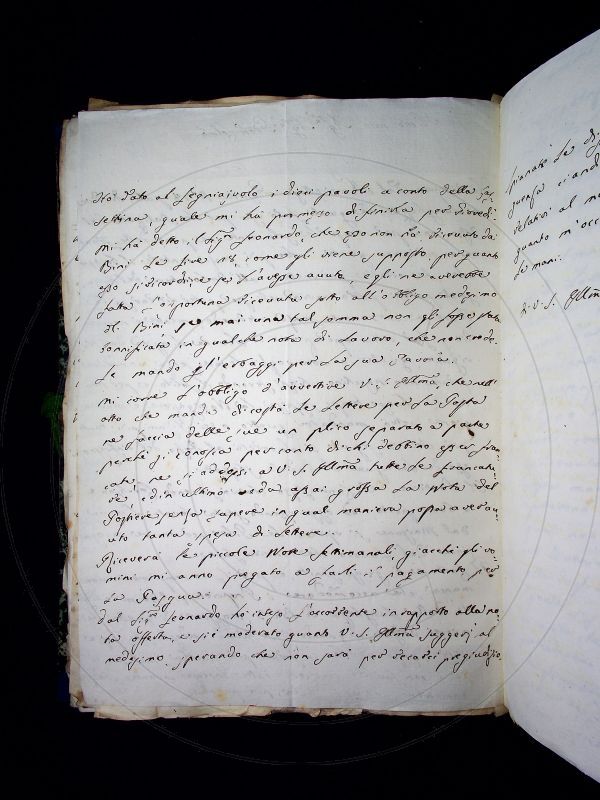 Ho dato al Legniajuolo i dieci pavoli a conto della Cas-
settina, quale mi ha promesso di finirla per Giovedì.
Mi ha detto il Sigr. Leonardo, che esso non ha ricevuto da
Bini le lire 18, come gli viene supposto, per quanto
esso si ricorderebbe se l'avesse avute, e gli ne averebbe
fata l'oportuna ricevuta sotto all'obligo medesimo
Il Bini, se mai una tal somma non gli fosse stata
bonificata in qualche nota di Lavoro, che non crede.
Le mando gl'erbaggi per la sua Tavola.
Mi corre l'obbligo d'avvertire V. S. Illma, che
atto che manda di costà le Lettere per la Posta
ne faccia delle sue un plico separato a parte
perché si conosca per conto di chi debbino esser fran-
cate, ne si addossi a V. S. Illma tutte le francatu-
re, ed in ultimo veda assai grossa la Nota del
Postiere senza sapere in qual maniera possa aver av-
uto tanta spesa di Lettere.
Riceverà le piccole Note settimanali giacchè gli vo-
mini mi anno pregato a farli il pagamento per
la Pasqua.
Dal Sigr. Leonardo ho inteso l'accidente in rapporto alla no-
ta offerta, e si è moderato quanto V. S. Illma suggerì al
medesimo, sperando che non sarà per recarci pregiudizio,
spianate le di
guenza
relativi al
quanto m'occ
le mani.
di V. S. Illma